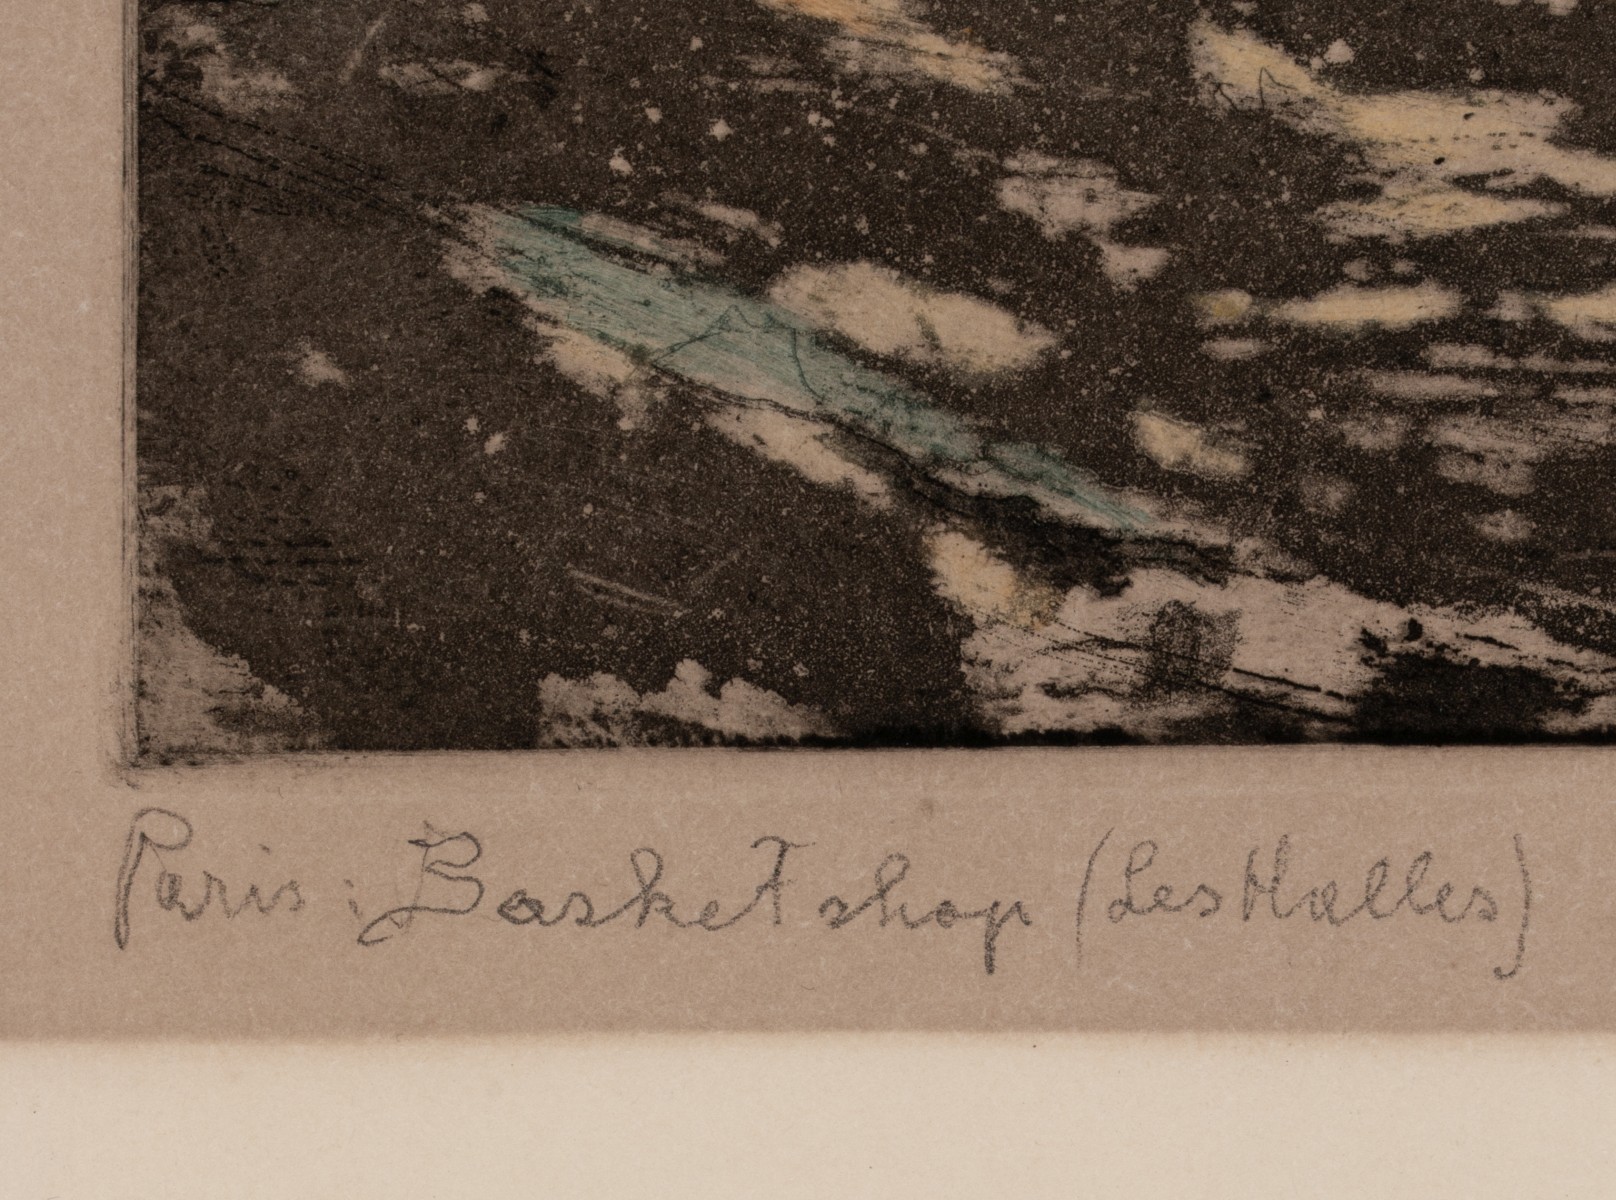 Paris : Basket shop (Les Halles)